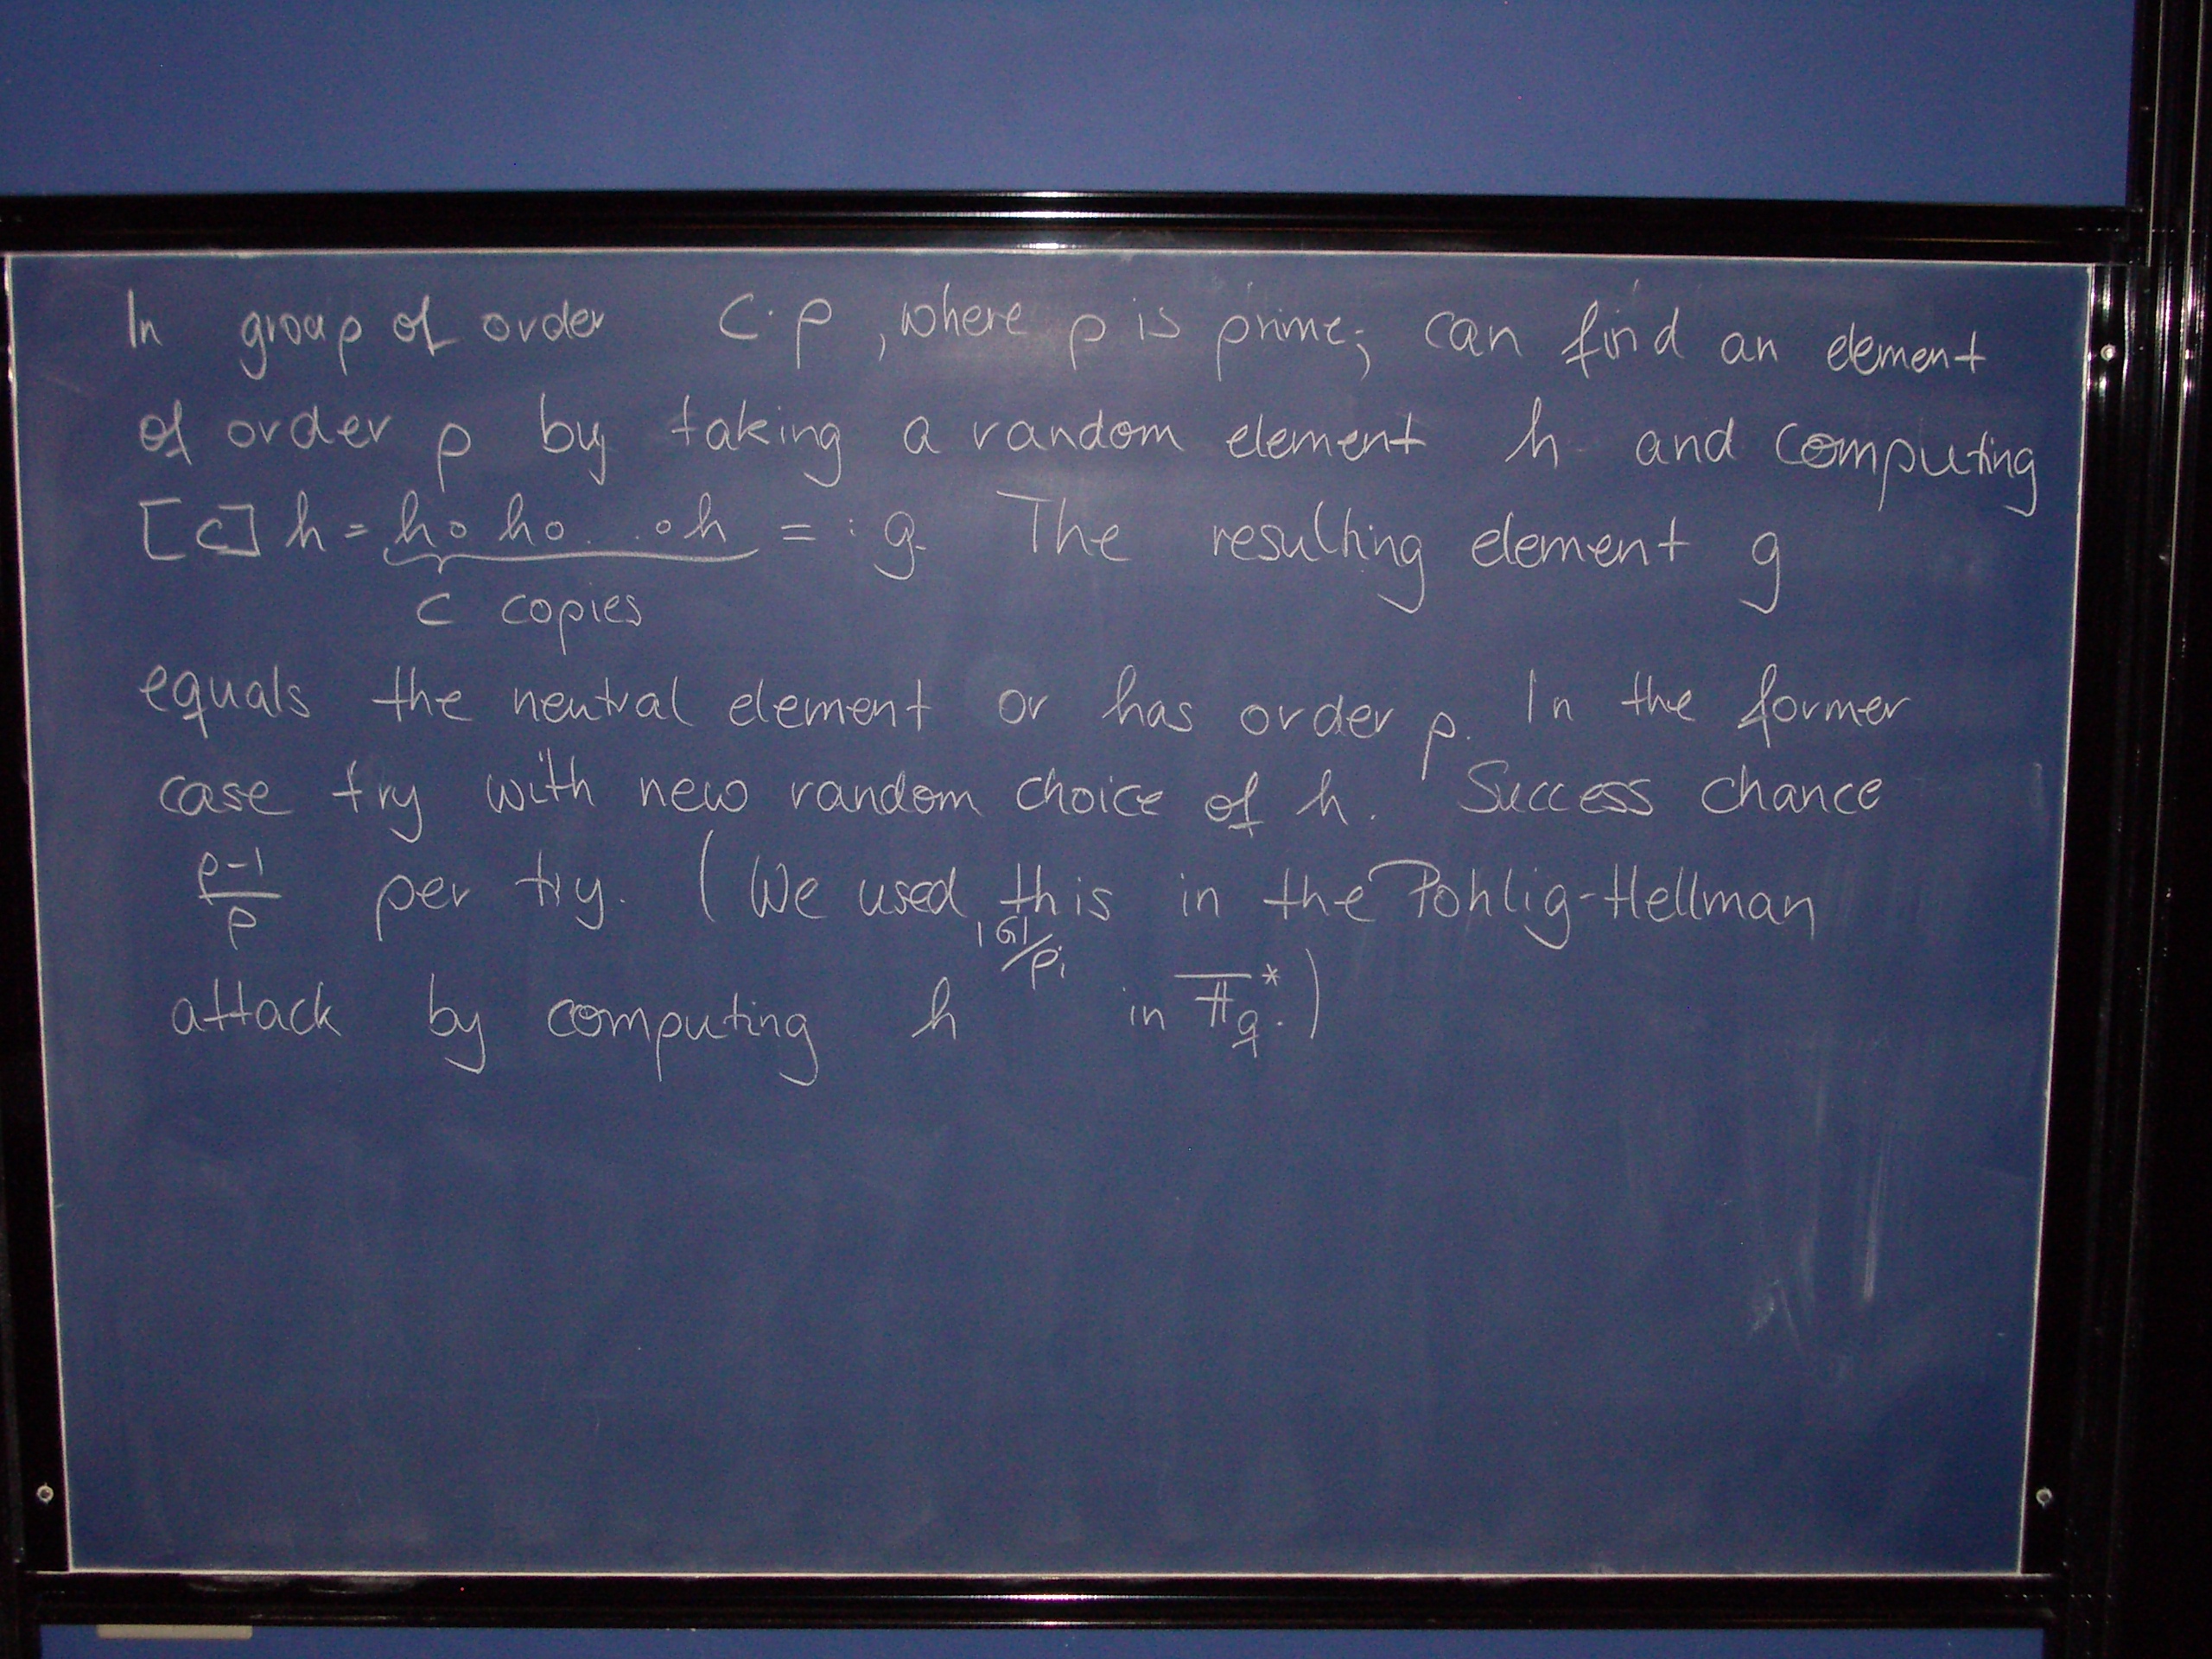 In group of order c·p, where p is prime; can find an element
of order p by taking a random element h and computing
[c]h = h∘h∘...∘h =: g. The resulting element g
c copies
equals the neutral element or has order p. In the former
case try with new random choice of h. Success chance
(p-1)/p per try. (We used this in the Pohlig-Hellman
attack by computing h^{|G|/p_i} in 𝔽_q^*.)